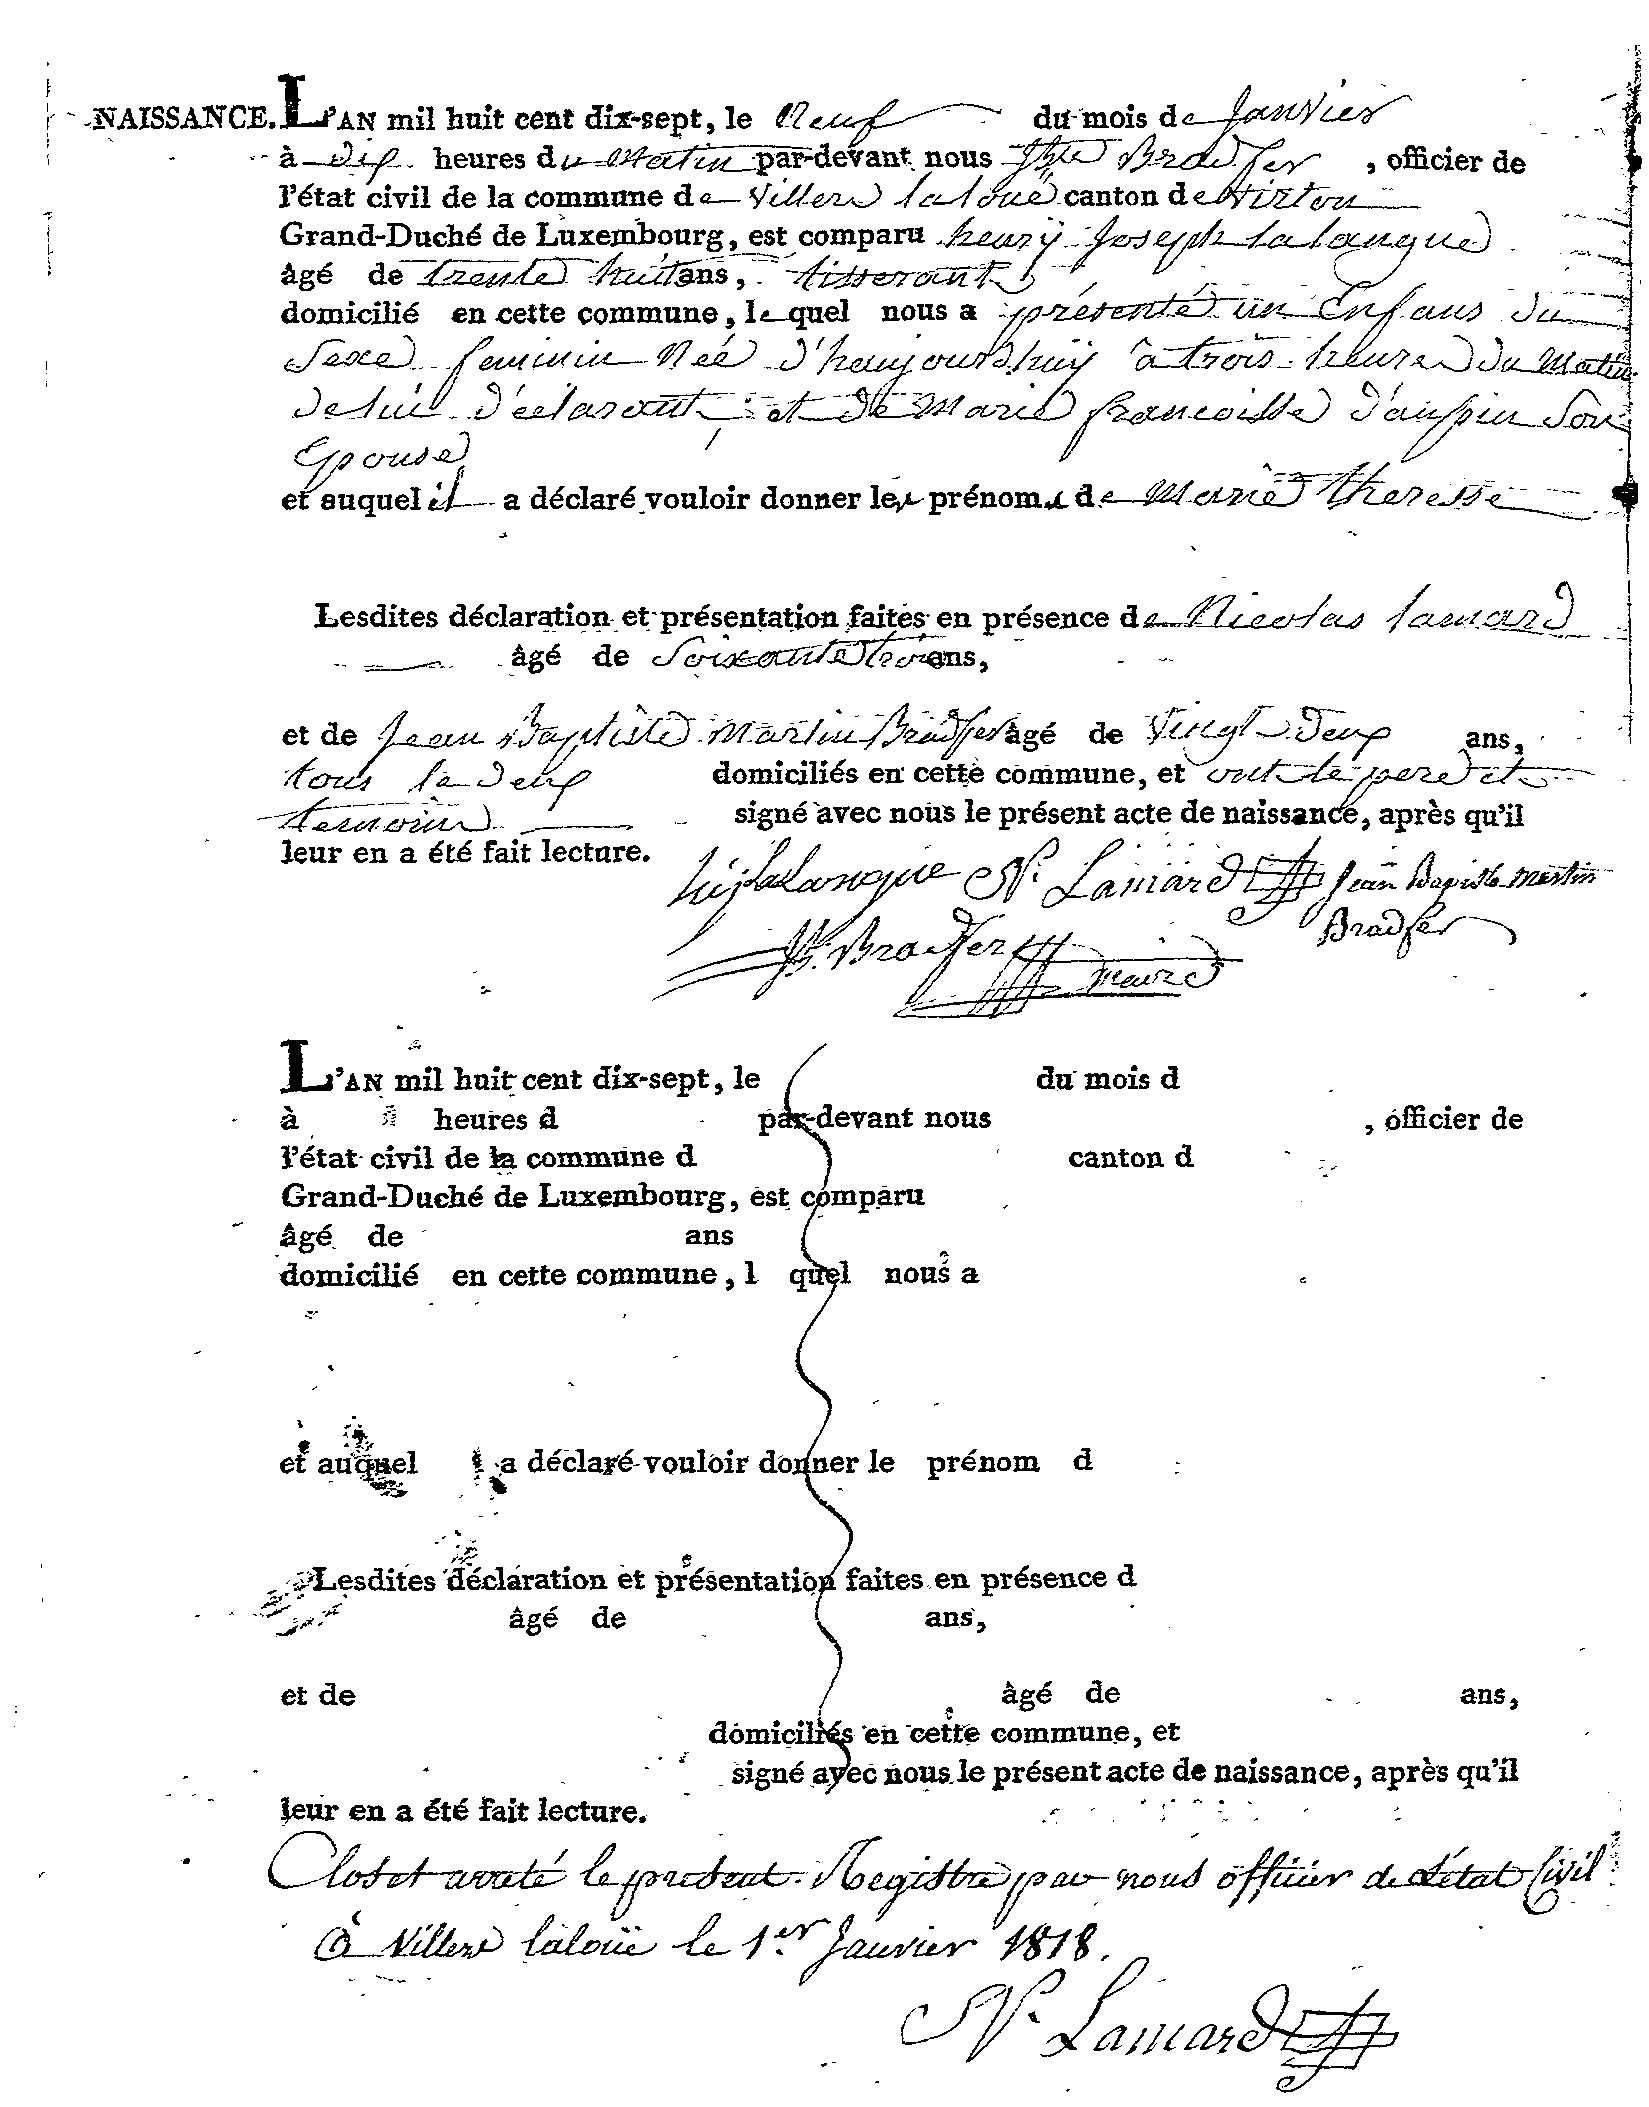 NAISSANCE. L'AN mil huit cent dix-sept, le Neuf du mois de Janvier
à dix heures du Matin par-devant nous Bradfer, officier de
l'état civil de la commune de Villers laloué canton de Virton
Grand-Duché de Luxembourg, est comparu henry Joseph lalangue
âgé de trente huit ans, tisserant
domicilié en cette commune, le quel nous a présenté un Enfans du
Sexe feminin Née d'haujourdhuy à trois heures du Matin
de lui déclarant, et de Marie francoisse d'aussin Son
Epouse
et auquel il a déclaré vouloir donner les prénoms de Marie theresse
Lesdites déclaration et présentation faites en présence de Nicolas lamard
âgé de Soixante trois ans,
et de Jean Baptiste Martin Bradfer âgé de Vingt Deux ans,
tous le deux domiciliés en cette commune, et ont le pere et
temoins signé avec nous le présent acte de naissance, après qu'il
leur en a été fait lecture.
hijlalangue N. Lamard Jean Bapiste Martin
Bradfer
Bradfer
maire
L'AN mil huit cent dix-sept, le du mois d
à heures d par-devant nous , officier de
l'état civil de la commune d canton d
Grand-Duché de Luxembourg, est comparu
âgé de ans
domicilié en cette commune, l quel nous a
et auquel a déclaré vouloir donner le prénom d
Lesdites déclaration et présentation faites en présence d
âgé de ans,
et de âgé de ans,
domiciliés en cette commune, et
signé avec nous le présent acte de naissance, après qu'il
leur en a été fait lecture.
Clos et arreté le present Registre par nous officier de l'état Civil
à Villers laloüe le 1er Janvier 1818.
N. Lamard